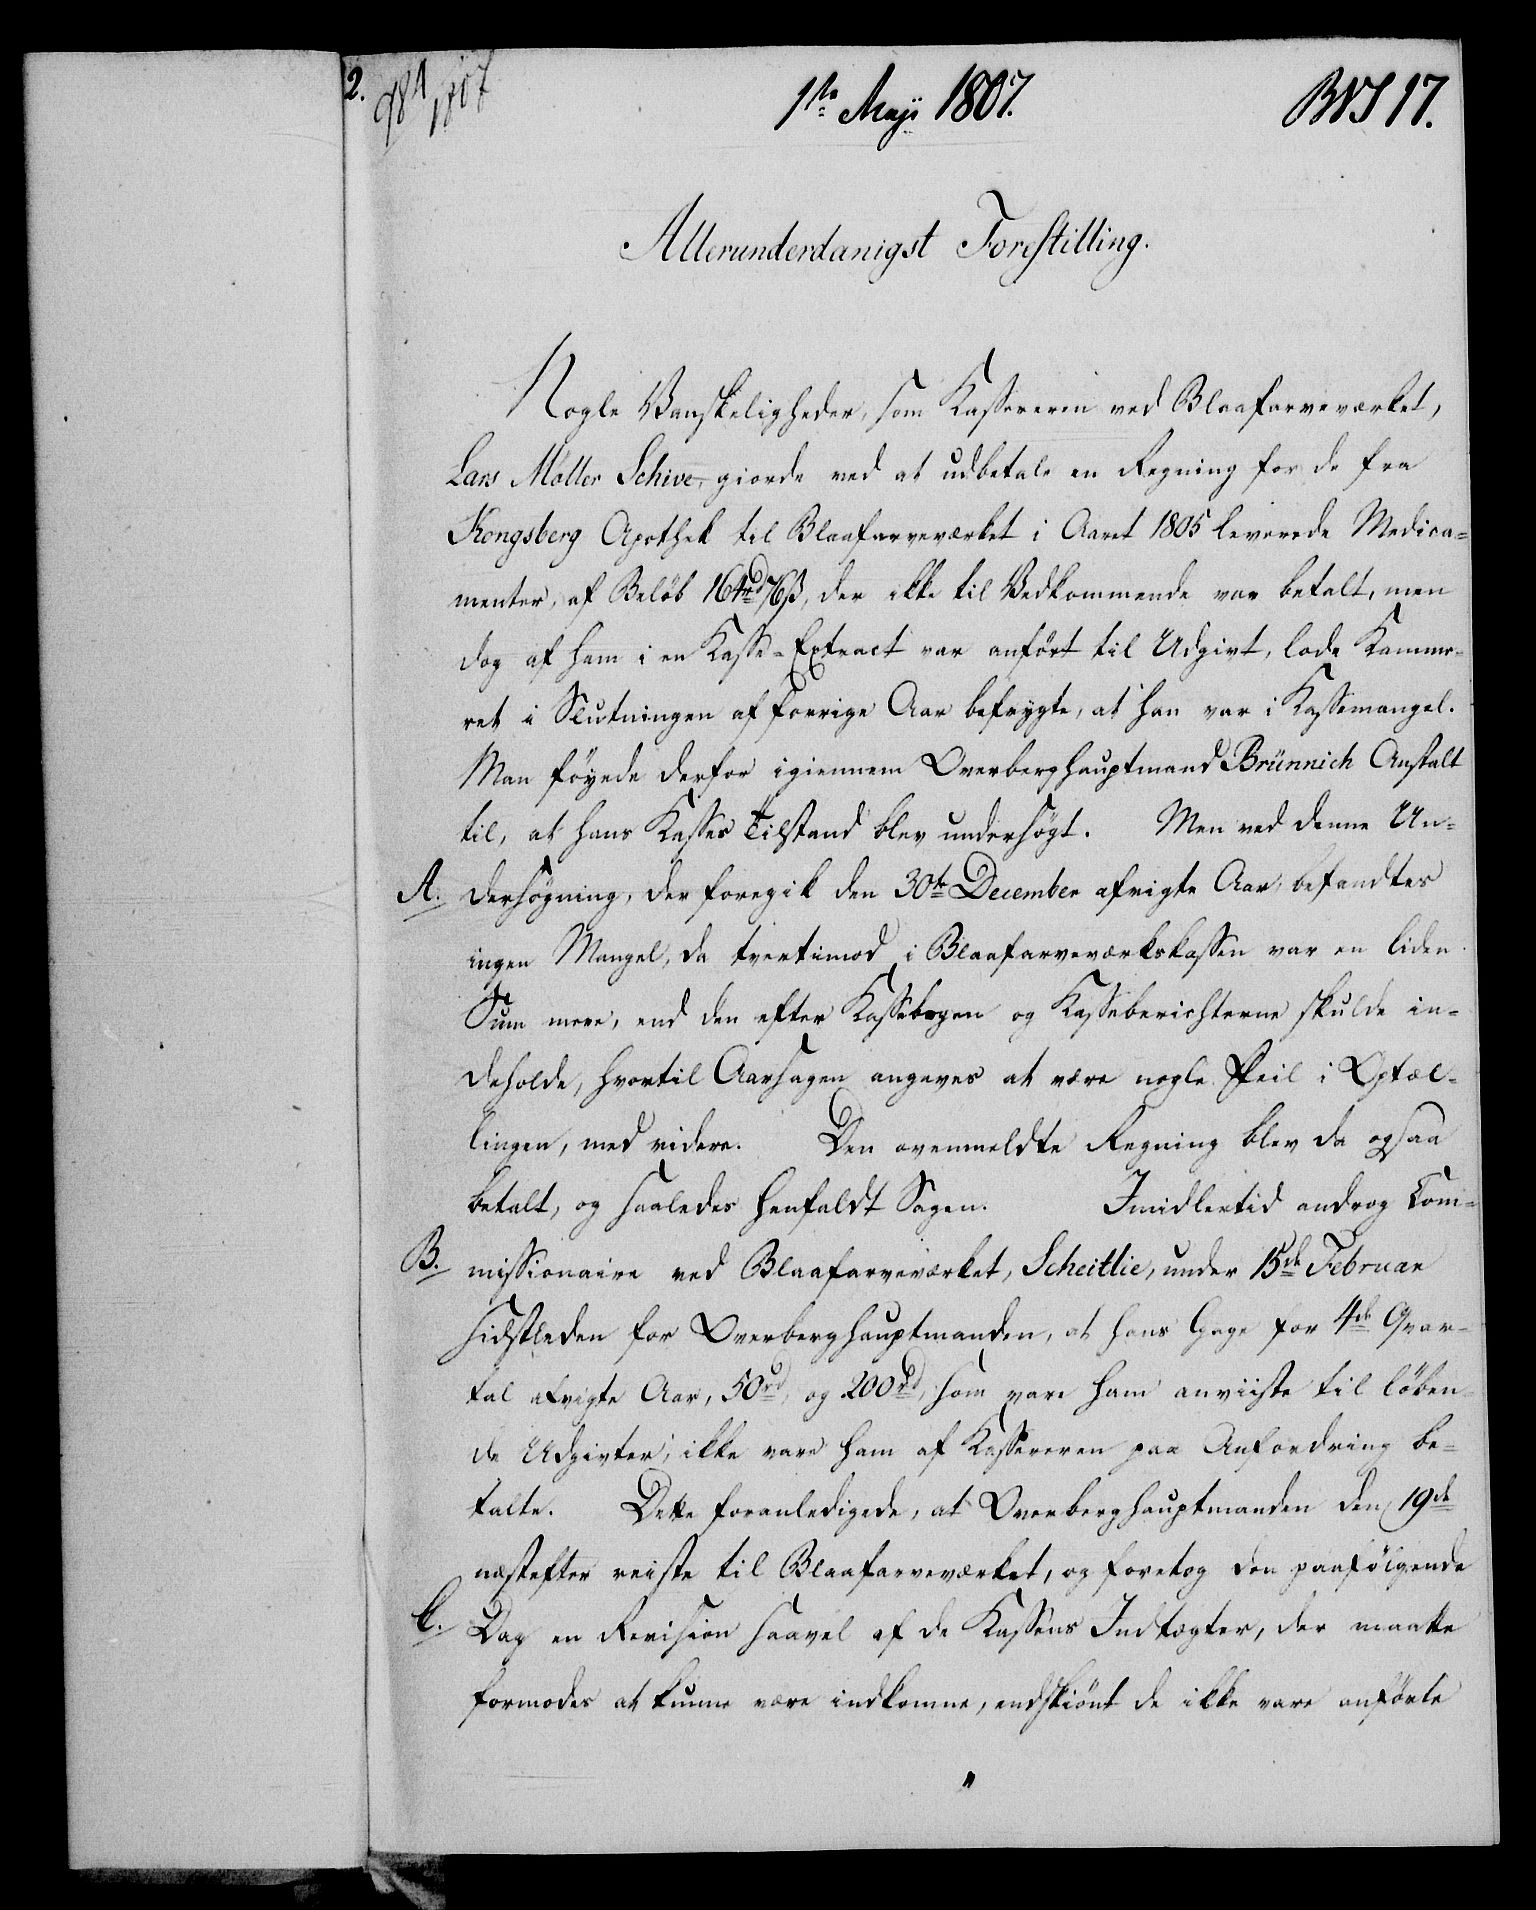 2.
984
1807
1ste Maji 1807.
BVS 17.
Allerunderdanigst Forestilling.
Nogle Vanskeligheder, som Kassereren ved Blaafarveværket,
Lars Møller Schive, giorde ved at udbetale en Regning for de fra
Kongsberg Apothek til Blaafarveværket i Aaret 1805 leverede Medica-
menter, af Beløb 164rd 76ß, der ikke til Vedkommende var betalt, men
dog af ham i en Kasse-Extract var anført til Udgivt, lode Kamme-
ret i Slutningen af forrige Aar befrygte, at han var i Kassemangel.
Man føyede derfor igiennem Overberghauptmand Brünnich Anstalt
til, at hans Kasses Tilstand blev undersøgt. Men ved denne Un-
A. dersøgning, der foregik den 30te December afvigte Aar, befandtes
ingen Mangel, da tvertimod i Blaafarveværkskassen var en liden
Sum mere, end den efter Kassebogen og Kasseberichterne skulde in-
deholde, hvortil Aarsagen angaves at være nogle Feil i Optæl-
lingen, med videre. Den ovenmeldte Regning blev da ogsaa
betalt, og saaledes henfaldt Sagen. Imidlertid androg Com-
B. missionaire ved Blaafarveværket, Scheitlie, under 15de Februar
sidstleden for Overberghauptmanden, at hans Gage for 4de Qvar-
tal afvigte Aar, 50rd, og 200rd, som vare ham anviiste til løben-
de Udgivter, ikke vare ham af Kassereren paa Anfordring be-
talte. Dette foranledigede, at Overberghauptmanden den 19de
næstefter reiste til Blaafarveværket, og foretog den paafølgende
C. Dag en Revision saavel af de Kassens Indtægter, der maatte
formodes at kunne være indkomne, endskiønt de ikke vare anførte